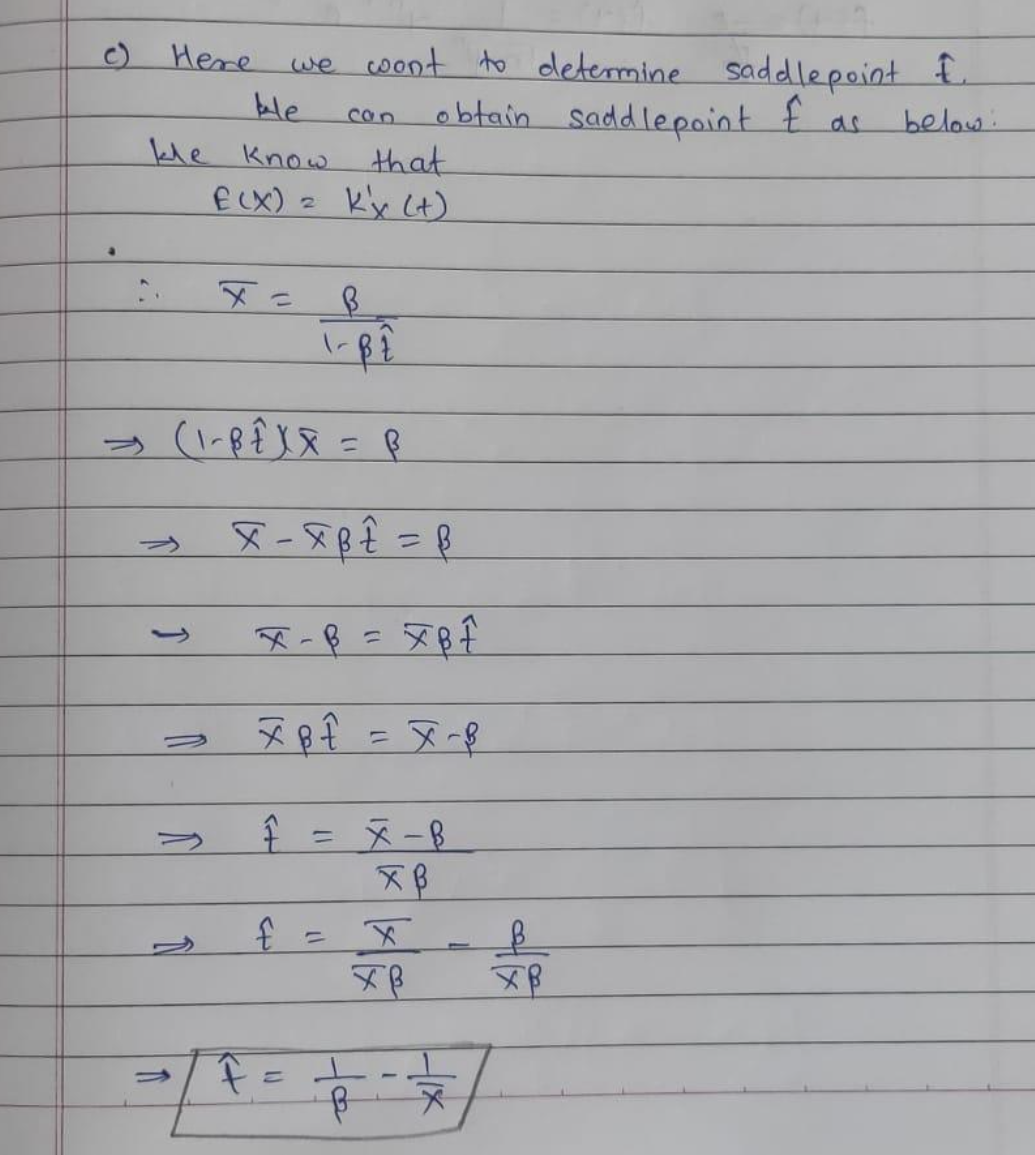 c) Here we wont to determine saddlepoint t̂.
We can obtain saddlepoint t̂ as below:
We know that
E(X) = K'x (t)
∴ x̄ = β / (1-βt̂)
⇒ (1-βt̂)(x̄ = β
⇒ x̄ - x̄βt̂ = β
→ x̄ - β = x̄βt̂
⇒ x̄βt̂ = x̄-β
⇒ t̂ = (x̄-β) / (x̄β)
⇒ t̂ = x̄ / (x̄β) - β / (x̄β)
⇒ t̂ = 1/β - 1/x̄